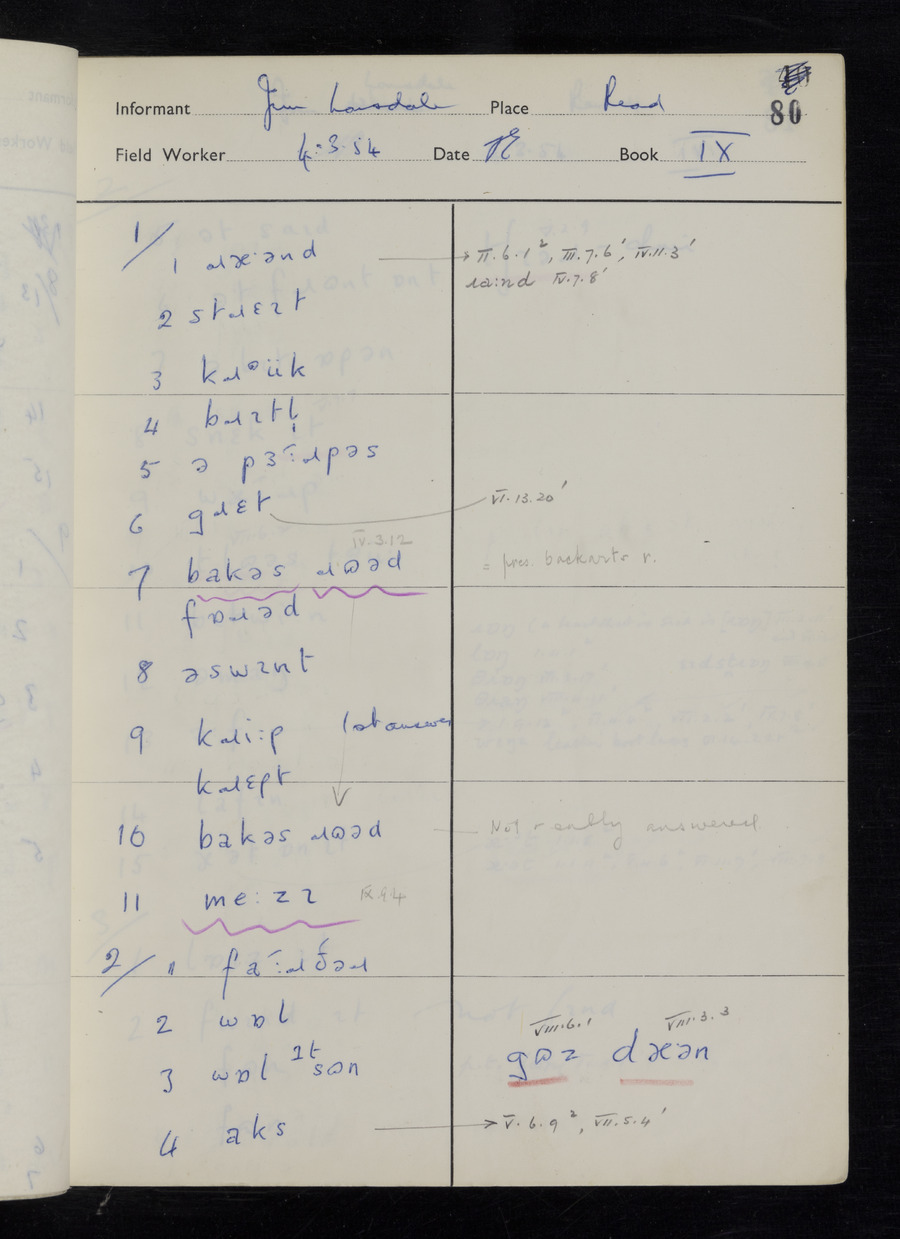 80
Informant Jim Lonsdale Place Read
Field Worker 4.3.54 Date PE Book IX
1/
1 ɹæ·ənd → II.6.1², III.7.6', IV.11.3'
ɹa:nd IV.7.8'
2 stɹɛɪt
3 kɹʊük
4 bɹɪtl̩
5 ə pɜ:ɹpəs
6 gɹɛt VI.13.20'
IV.3.12
7 bakəs ɹʊəd = pres. backarts r.
fɒɹəd
8 əswɪnt
9 kɹi:p 1st answer
kɹɛpt
10 bakəs ɹʊəd Not really answered
11 me:zɪ IX.9.4
2/ 1 fa:ɹðəɹ
2 wɒl
VIII.6.1 VIII.3.3
3 wɒl ɪt sʊn gʊz dæ·ən
4 aks → V.6.9², VII.5.4'